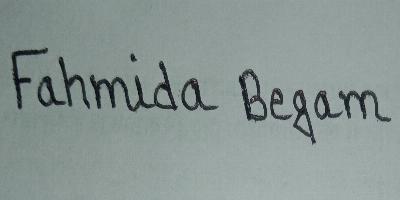 Fahmida Begam